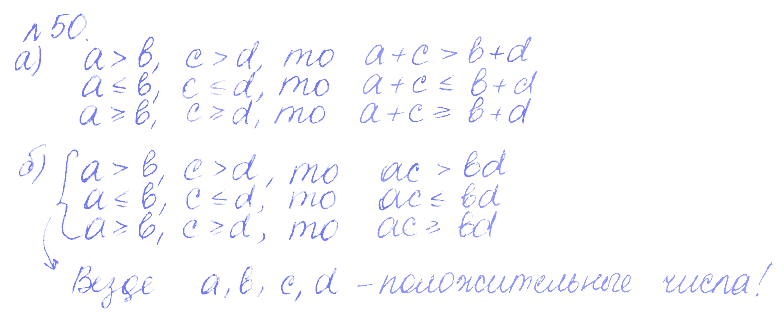 № 50.
а) a > b, c > d, то a + c > b + d
a ≤ b, c ≤ d, то a + c ≤ b + d
a ≥ b, c ≥ d, то a + c ≥ b + d
б) a > b, c > d, то ac > bd
a ≤ b, c ≤ d, то ac ≤ bd
a ≥ b, c ≥ d, то ac ≥ bd
Везде a, b, c, d – положительные числа!